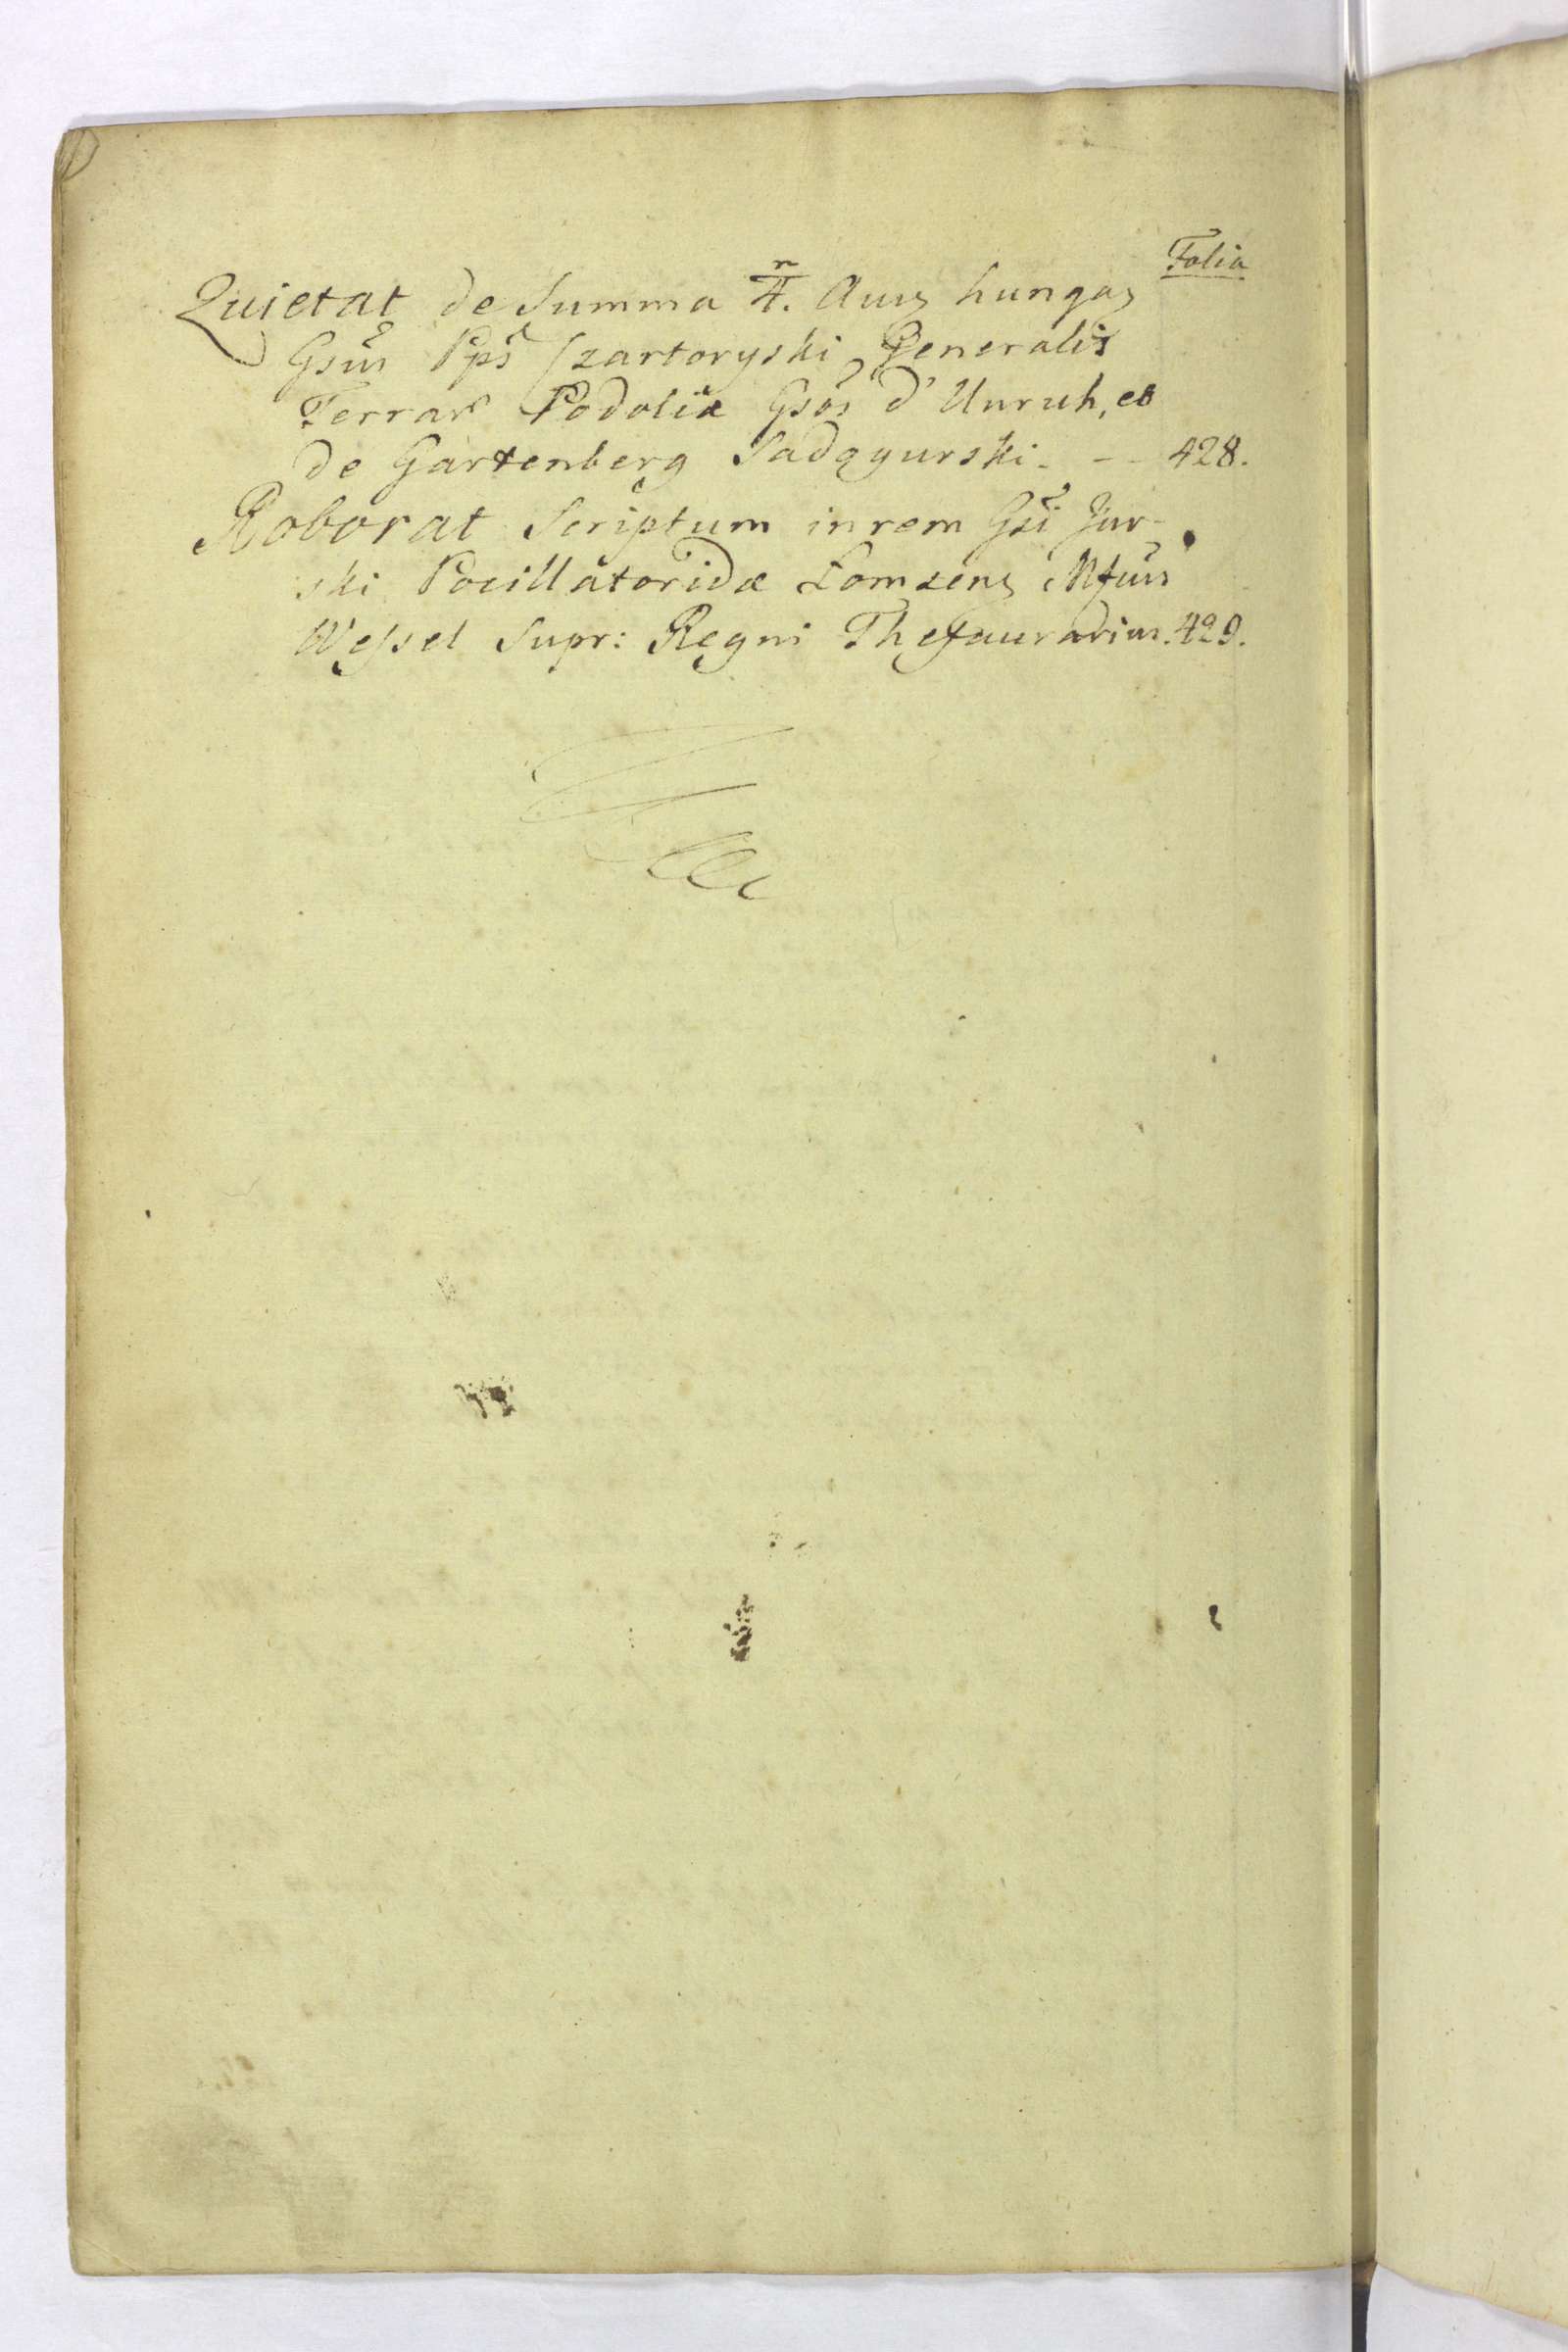 Folia
Quietat de Summa 4. Aur hungar
Gsus Pps Czartoryski Generalis
Terrar Podoliæ Gsos d'Unruh, et
de Gartenberg Sadągurski. - - 428.
Roborat Scriptum in rem Gsi Jur-
ski Pocillatoridæ Łomzens Mfus
Wessel Supr: Regni Thesaurarius. 429.